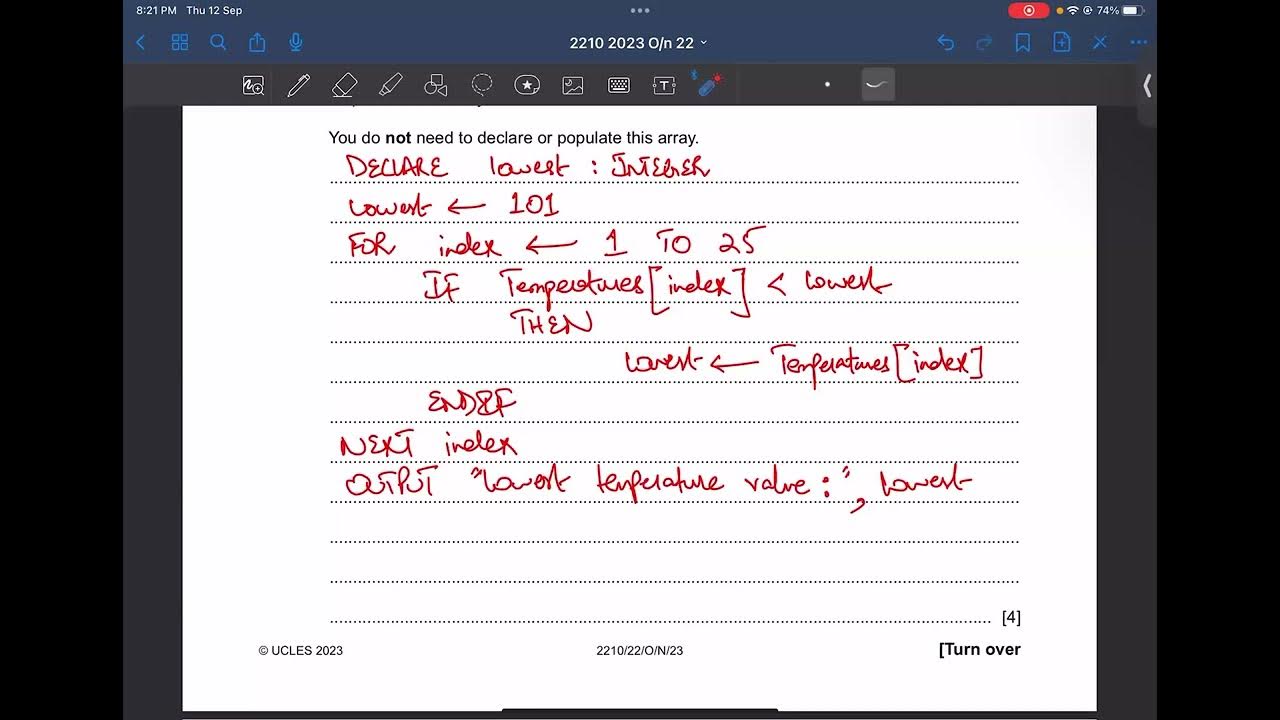 8:21 PM Thu 12 Sep
74%
2210 2023 O/n 22
You do not need to declare or populate this array.
DECLARE lowest : INTEGER
lowest ← 101
FOR index ← 1 TO 25
IF Temperatures[index] < lowest
THEN
lowest ← Temperatures[index]
ENDIF
NEXT index
OUTPUT "lowest temperature value :", lowest
[4]
© UCLES 2023 2210/22/O/N/23 [Turn over